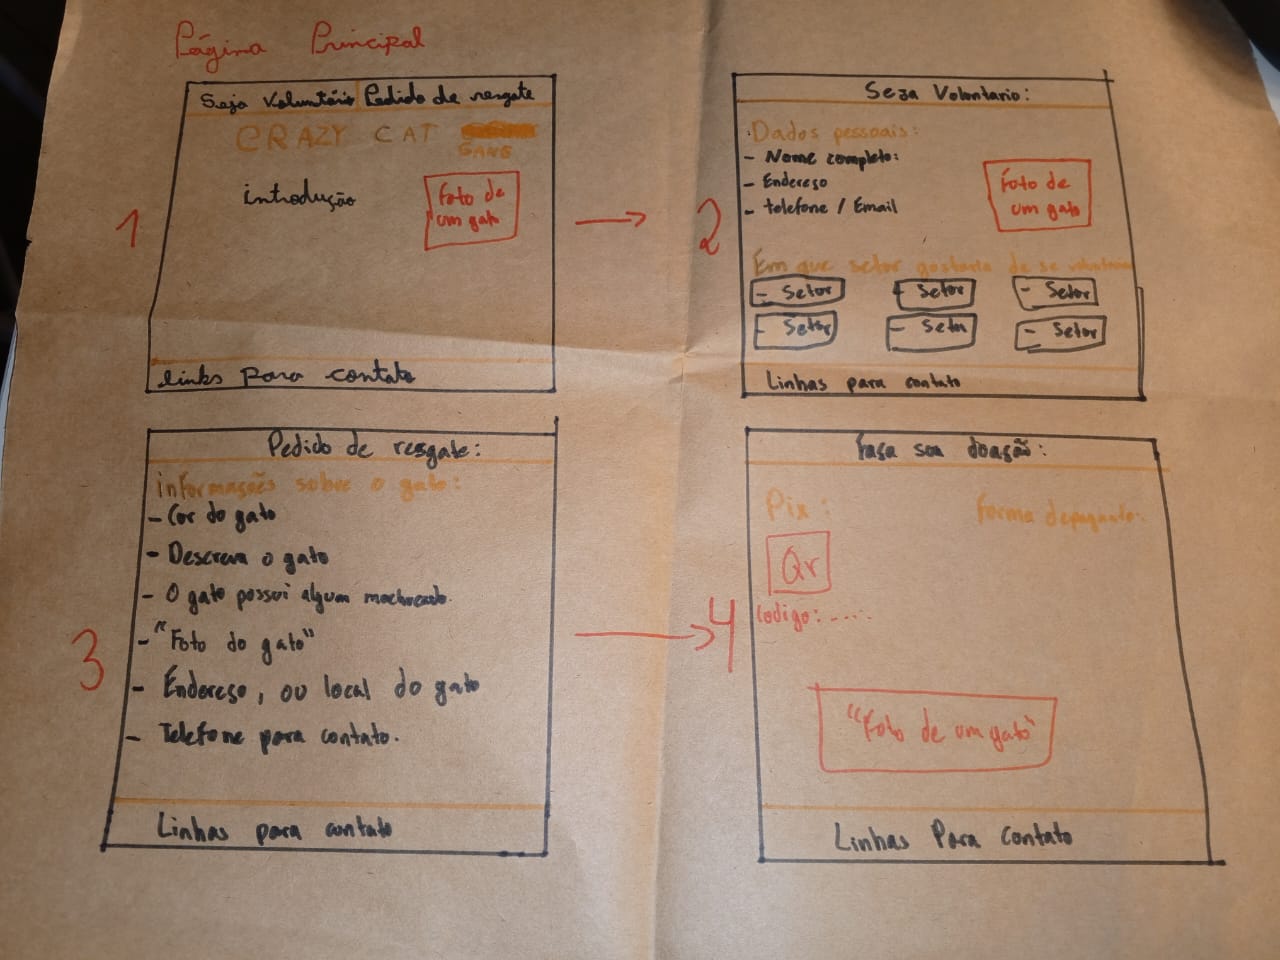 Página Principal
1
Seja Voluntário Pedido de resgate
CRAZY CAT
GANG
introdução
Foto de
um gato
links para contato
2
Seja Volontario:
Dados pessoais:
- Nome completo:
- Endereso
- telefone / Email
Foto de
um gato
Em que setor gostaria de se
- Setor
- Setor
- Setor
- Setor
- Setor
- Setor
Linhas para contato
3
Pedido de resgate:
informações sobre o gato:
- Cor do gato
- Descreva o gato
- O gato possui algum machucado.
- "Foto do gato"
- Endereso, ou local do gato
- Telefone para contato.
Linhas para contato
4
Faça sua doação:
Pix:
Forma de
Qr
Codigo: .....
"Foto de um gato"
Linhas Para Contato